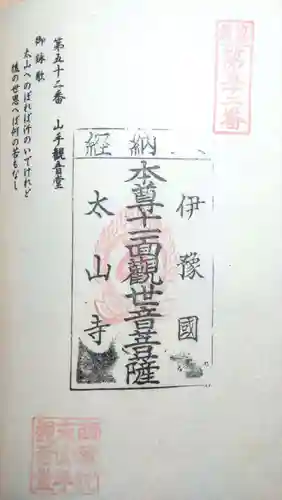 第五十二番
納經
伊豫國
本尊十一面觀世音菩薩
太山寺
第五十二番　山手觀音堂
御詠歌
太山へのぼれば汗のいでけれど
後の世思へば何の苦もなし